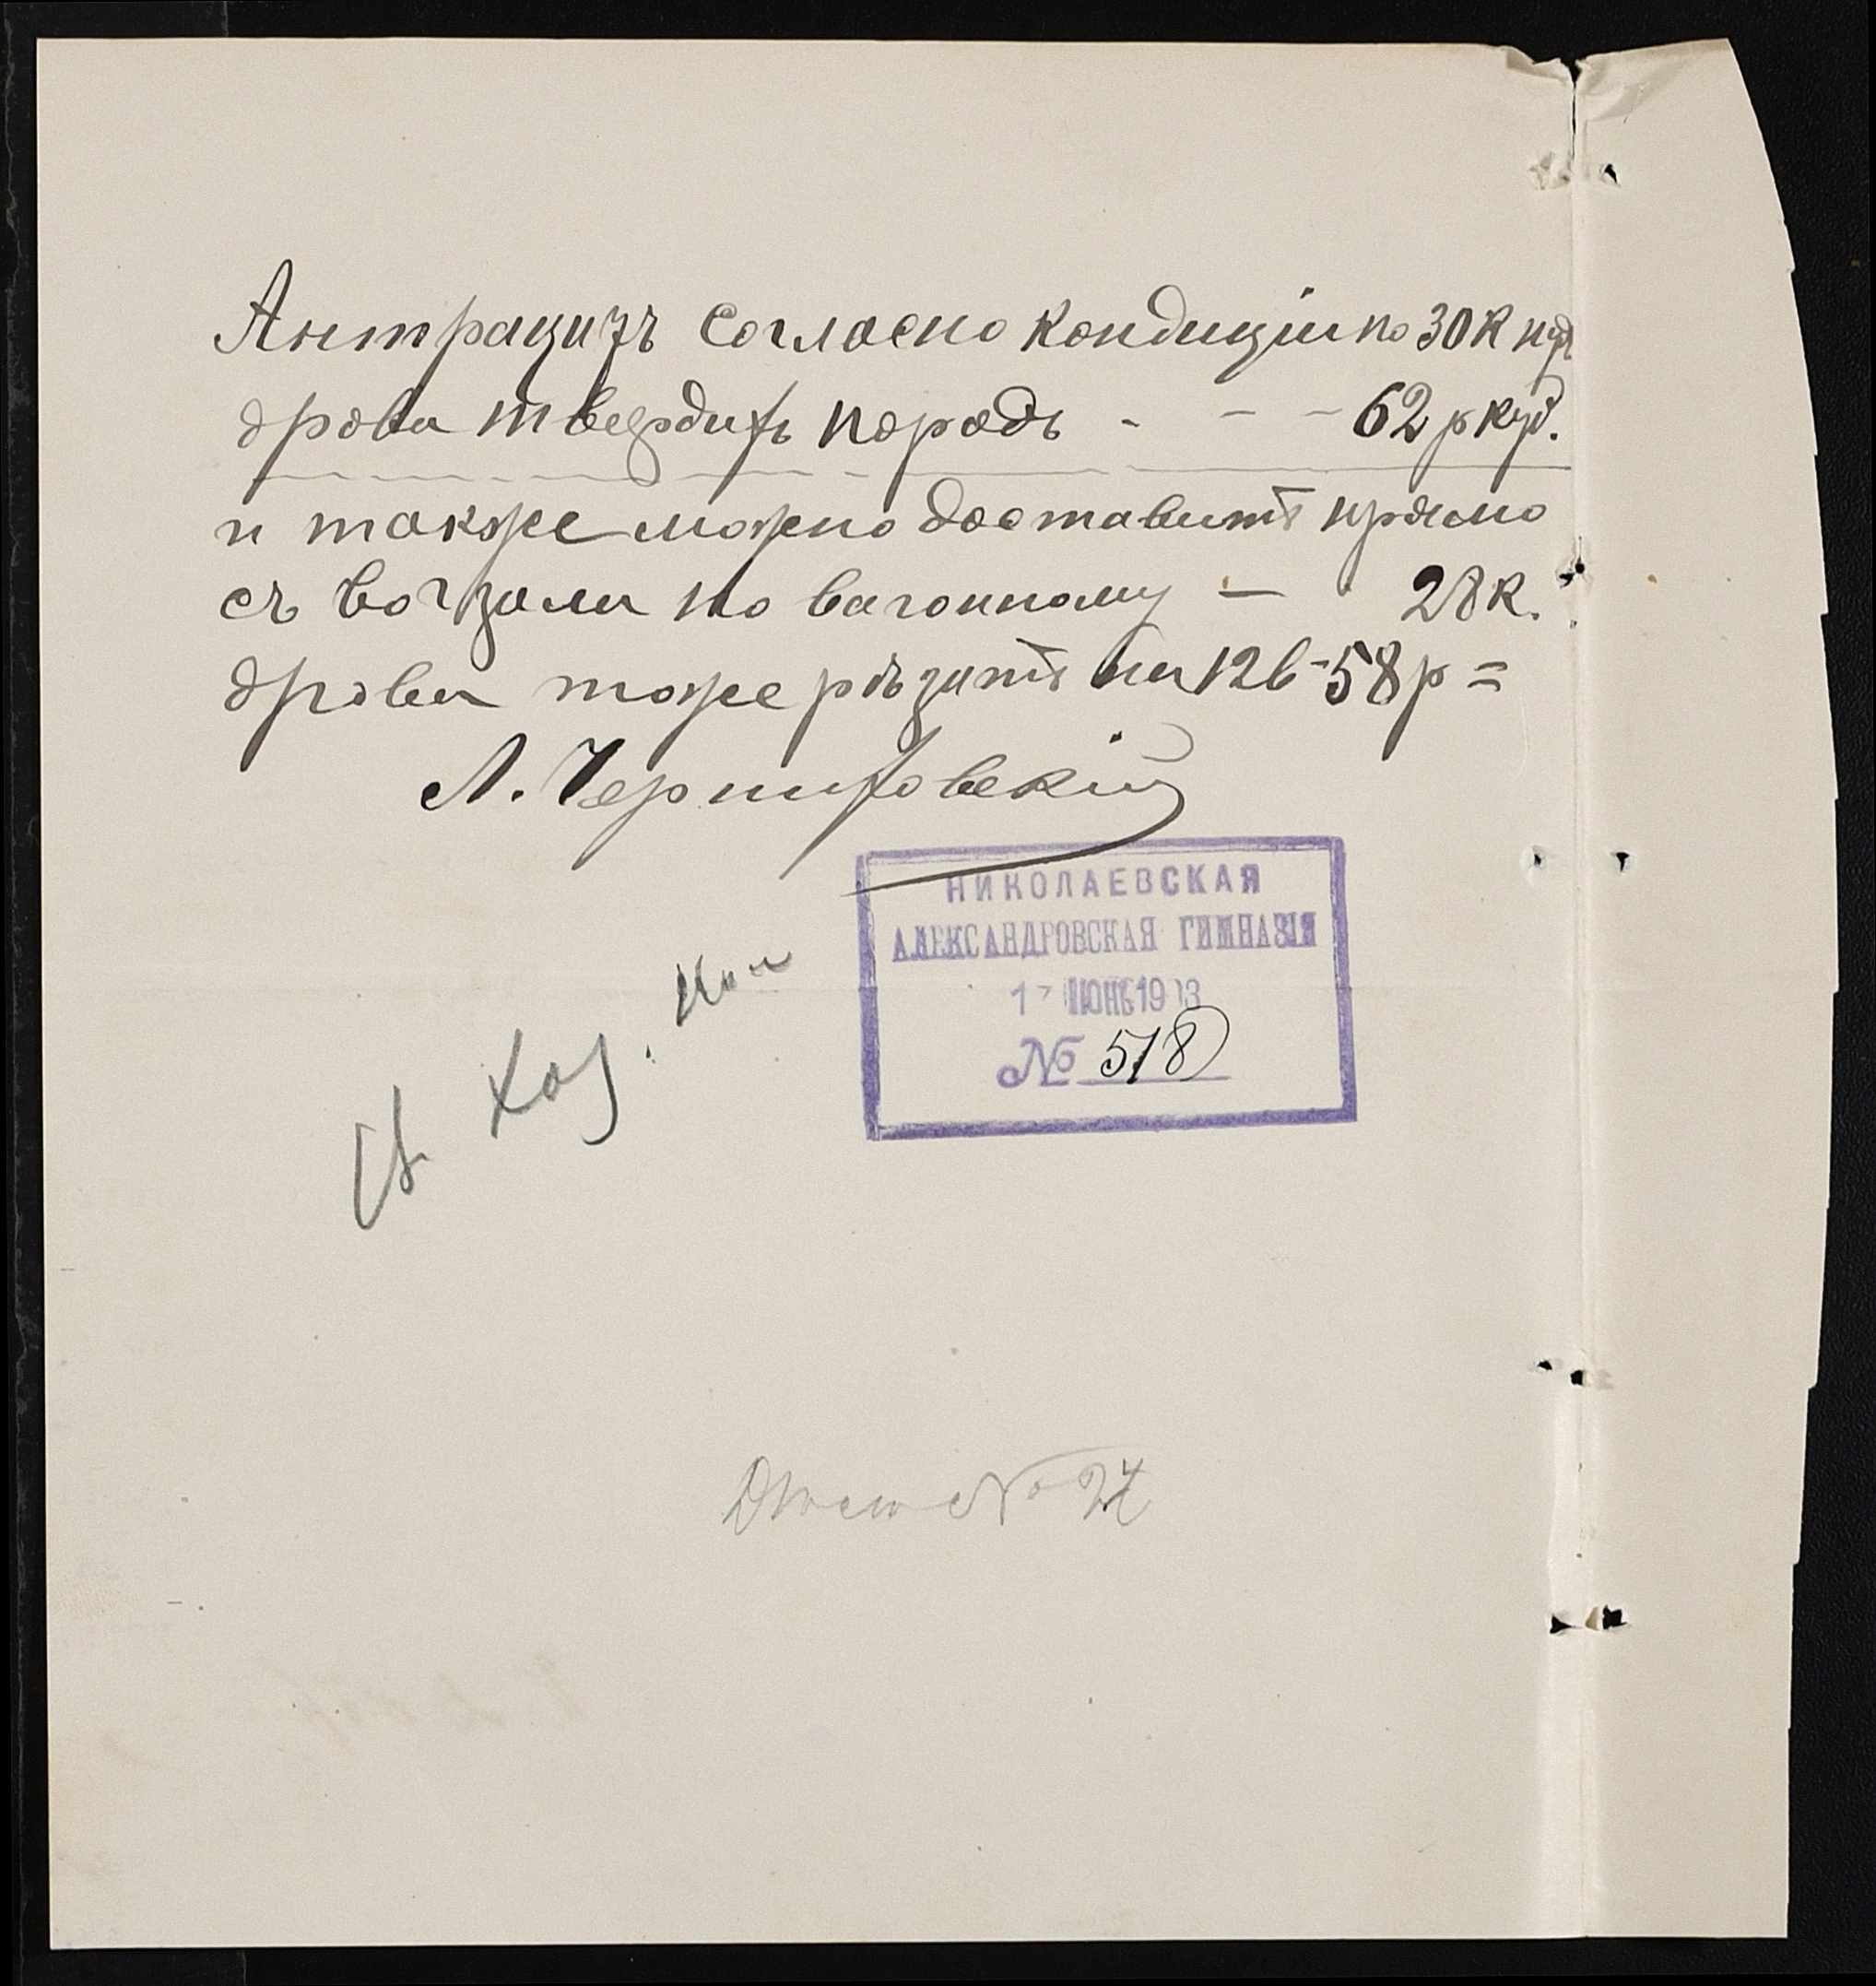 Антрацитъ согласно кондиціи по 30 к пуд
дрова твердихъ породъ - - - 62 р куб.
и также можно доставить прямо
съ вогзала по вагонному — 28 к.
дрова тоже рѣзать на 12 в - 58 р =
Л. Черниховскій
НИКОЛАЕВСКАЯ
АЛЕКСАНДРОВСКАЯ ГИМНАЗІЯ
1 ІЮН 19 3
№ 518
Хоз.
№ 24